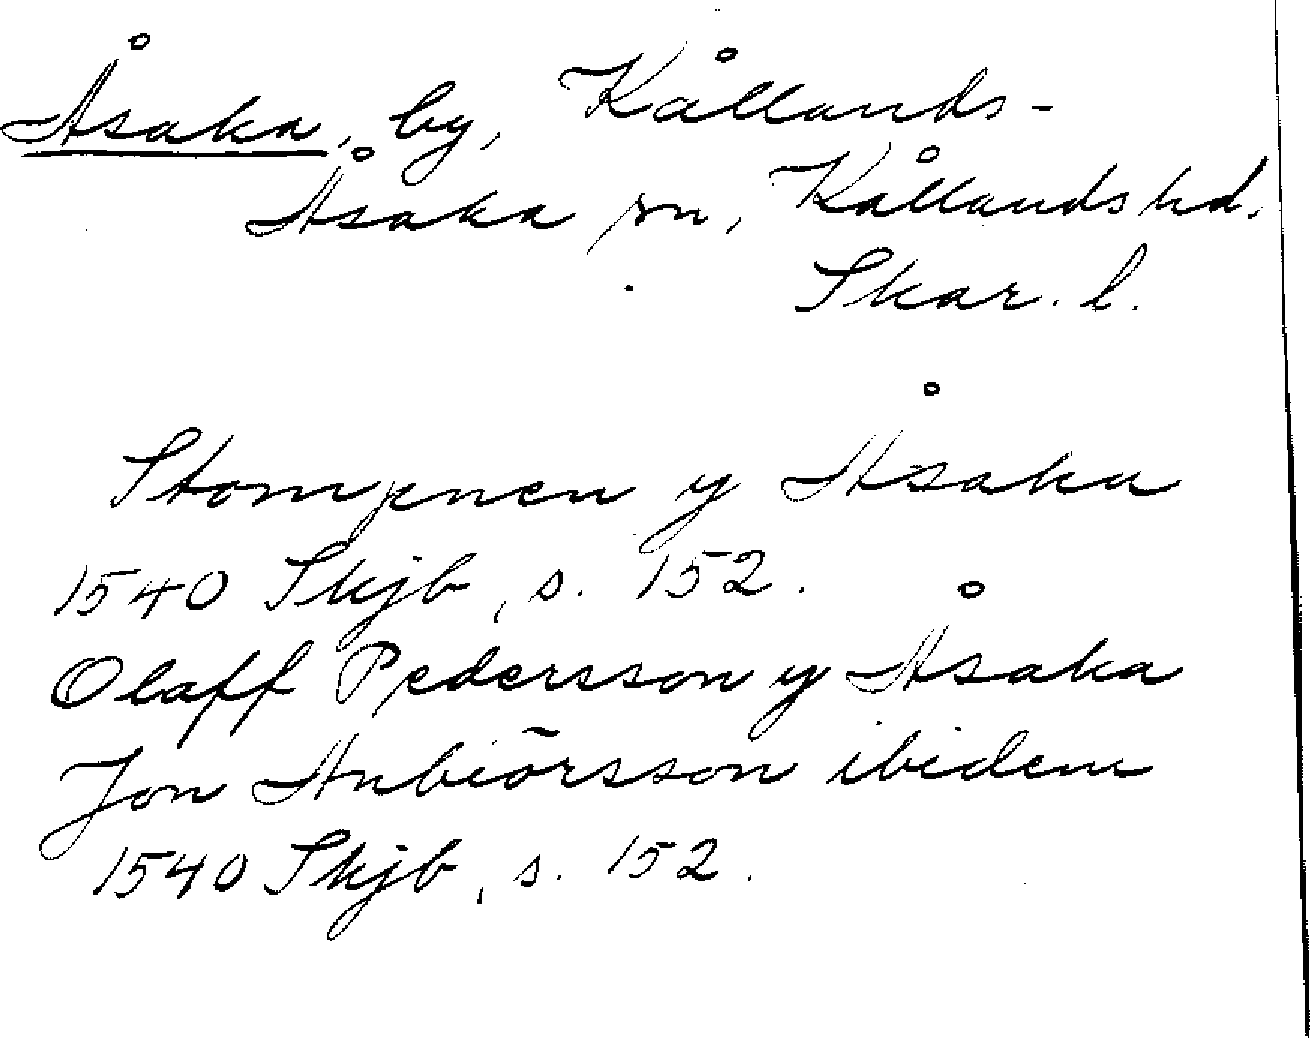 Åsaka, by, Kållands-
Åsaka sn, Kållands hd.
Skar. l.
Stompnen y Åsaka
1540 Skjb, s. 152.
Olaff Pedersson y Åsaka
Jon Anbiörsson ibidem
1540 Skjb, s. 152.